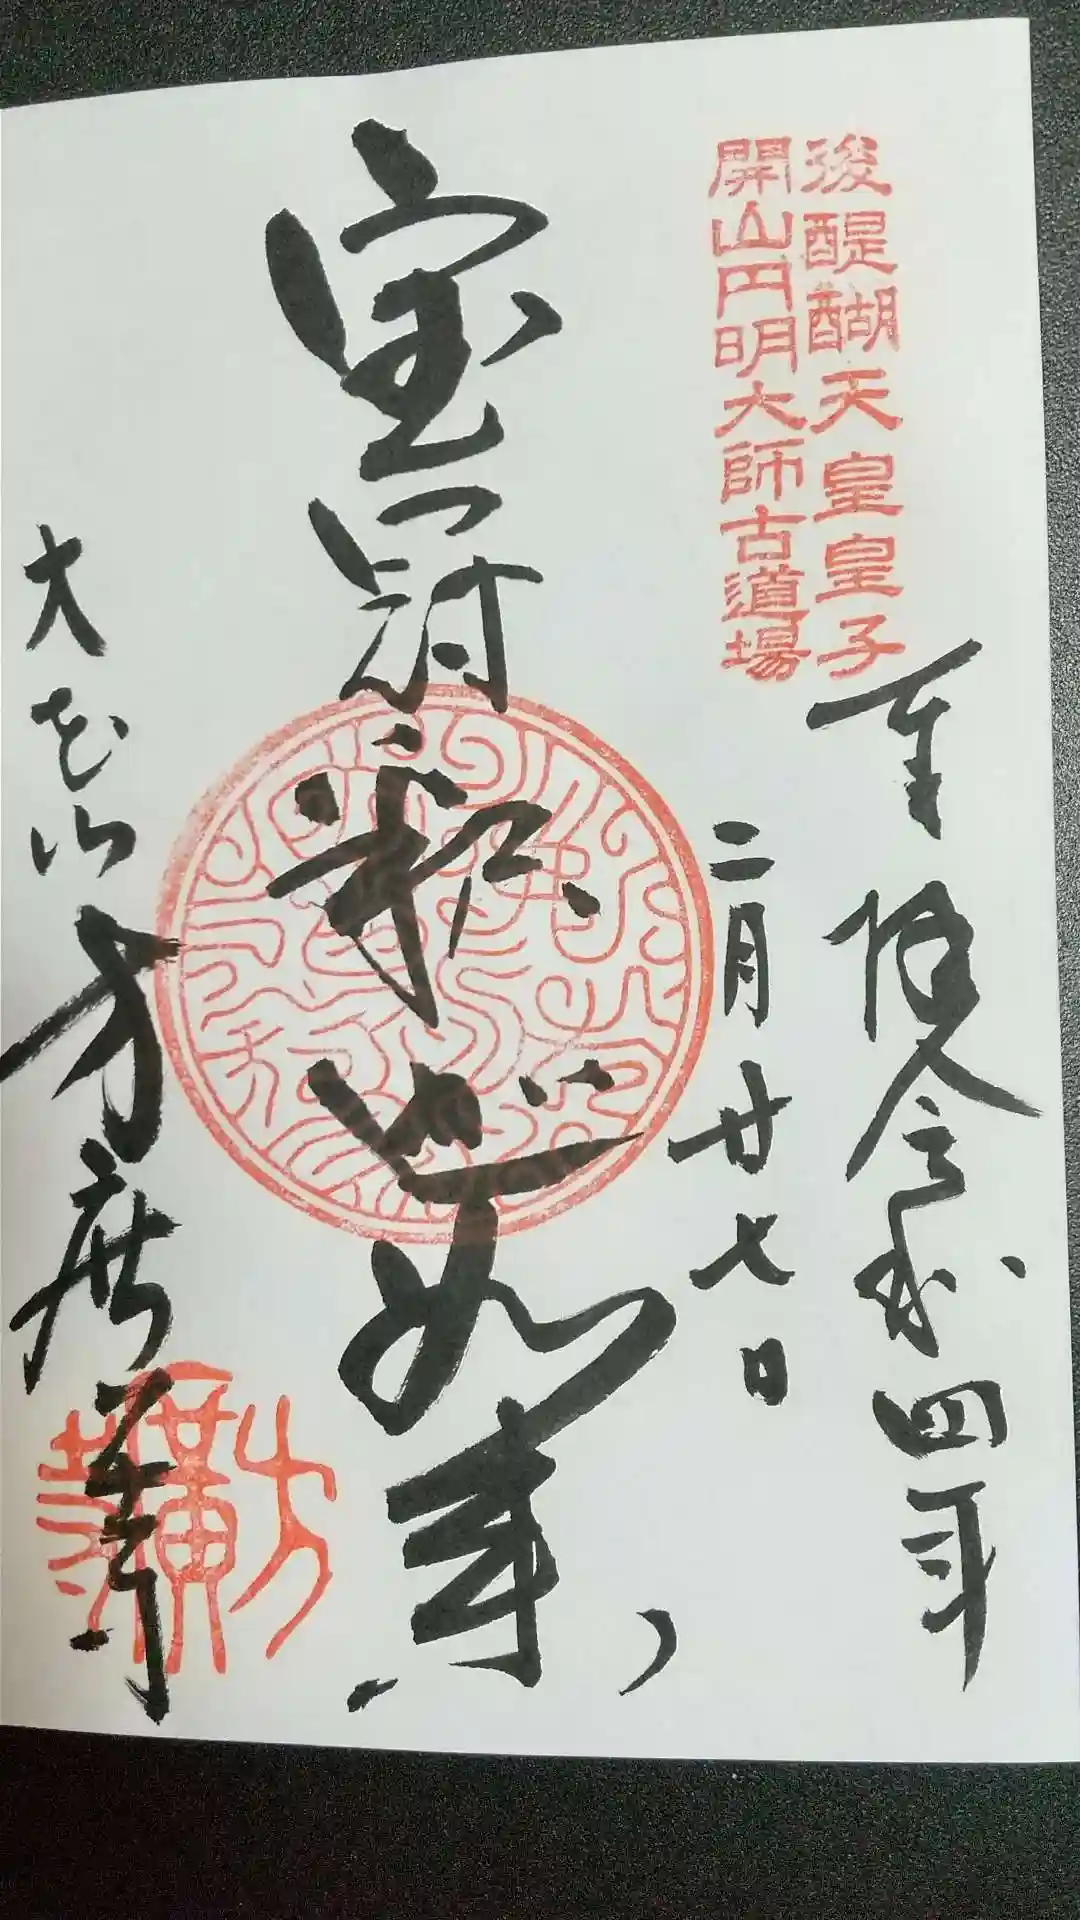 後醍醐天皇皇子
開山円明大師古道場
奉拝 令和四年
二月廿七日
宝冠釈迦如来
方広寺
方廣寺